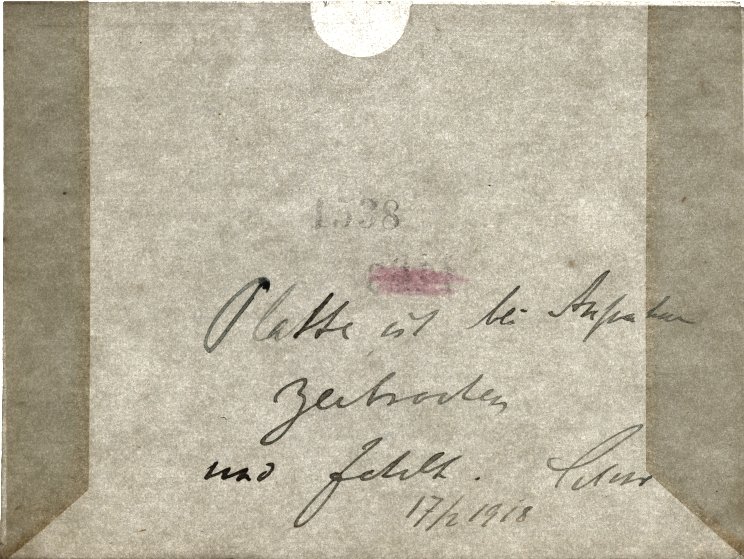 1538
Platte ist bei Aufnahme
zerbrochen
und fehlt.
17/2 1918